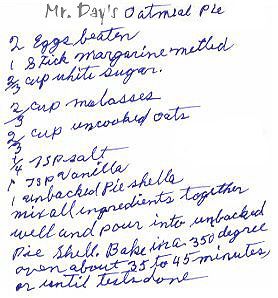 Mr. Day's Oatmeal Pie
2 Eggs beaten
1 Stick margarine metled
2/3 cup white sugar.
2/3 cup molasses
2/3 cup uncooked oats
1/4 TSP salt
1 TSP Vanilla
1 unbacked Pie shells
mix all ingredients together
well and pour into unbacked
Pie Shell. Bake in a 350 degree
oven about 35 to 45 minutes
or until tests done